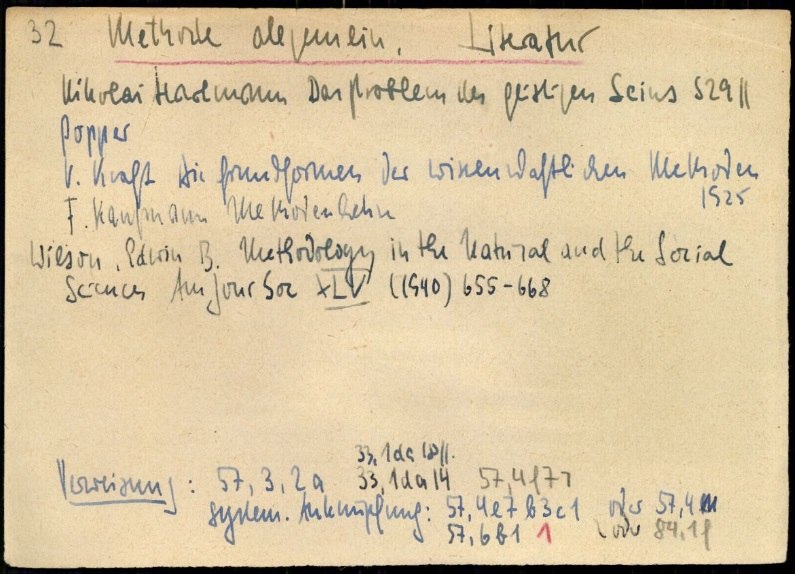 32 Methode allgemein. Literatur
Nikolai Hartmann Das Problem des geistigen Seins S29ff
Popper
V. Kraft Die Grundformen der wissenschaftlichen Methoden
1925
F. Kaufmann Methodenlehre
Wilson, Edwin B. Methodology in the Natural and the Social
Sciences Am Jour Soc XLV (1940) 655-668
33,1da18ff.
Verweisung: 57,3,2a 33,1da14 57,4f7
system. Anknüpfung: 57,4e7b3c1 oder 57,4
57,6b1 1 oder 84,1f